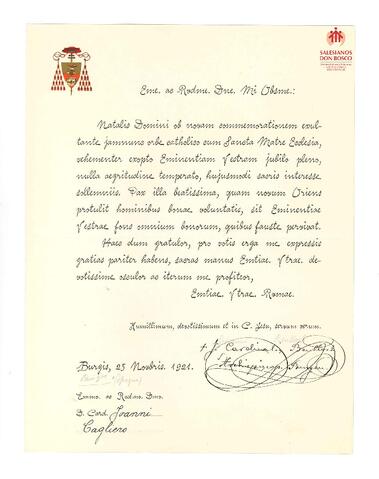 SALESIANOS
DON BOSCO
Eme. ac Rvdme. Dne. Mi Obsme.:
Natalis Domini ob novam commemorationem exul-
tante jamnunc orbe catholico cum Sancta Matre Ecclesia,
vehementer exopto Eminentiam Vestram jubilo pleno,
nulla aegritudine temperato, hujusmodi sacris interesse
sollemniis. Pax illa beatissima, quam novum Oriens
protulit hominibus bonae voluntatis, sit Eminentiae
Vestrae fons omnium bonorum, quibus fauste pervivat.
Haec dum gratulor, pro votis erga me expressis
gratias pariter habens, sacras manus Emtiae. Vtrae. de-
votissime osculor ac iterum me profiteor,
Emtiae Vtrae Rvmae.
Humillimum, devotissimum et in C. Jesu, servum verum.
+ J. Cardinal
Burgis, 25 Novbris. 1921.
Emmo. ac Rvdmo. Dno.
D. Card. Joanni
Cagliero